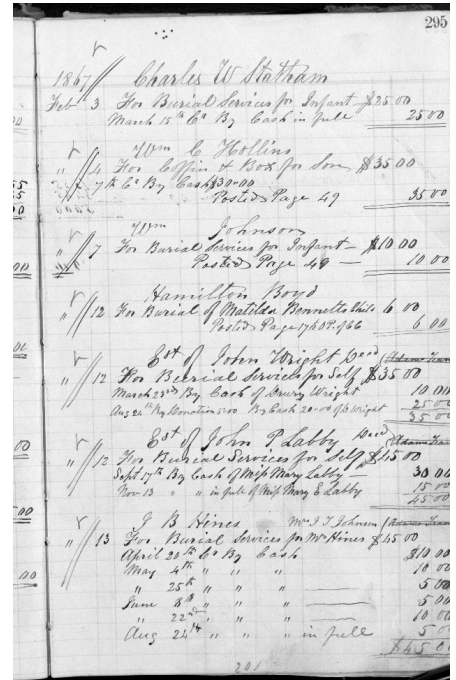 295
1867 Charles W Statham
Feb 3 For Burial Services for Infant $25 00
March 15th Cr By Cash in full 25 00
Wm C Hollins
" 4 For Coffin & Box for Son $35 00
7th Cr By Cash $30-00
Posted Page 49 35 00
Wm Johnson
" 7 For Burial Services for Infant — $10 00
Posted Page 49 — 10 00
Hamilton Boyd
" 12 For Burial of Matilda Bennetts Child 6 00
Posted Page 17 66 6 00
Est of John Wright Decd
" 12 For Burial Services for Self $35 00
March 23rd By Cash of Drury Wright 10 00
Aug 24th By Donation 5-00 By Cash 20-00 of Wright 25 00
35 00
Est of John P Labby Decd
" 12 For Burial Services for Self $45 00
Sept 17th By Cash of Miss Mary Labby 30 00
Nov 13 " " in full of Miss Mary E Labby 15 00
45 00
J B Hines Mrs J T Johnson
" 13 For Burial Services for Mrs Hines $45 00
April 20th Cr By Cash $10 00
May 4th " " " 10 00
" 25th " " " 5 00
June 8th " " " 5 00
" 22nd " " " 10 00
Aug 24th " " " in full 5 00
$45 00